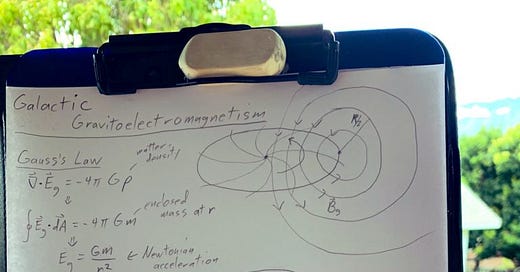 Galactic
Gravitoelectromagnetism
Gauss's Law
matter density
∇⃗·E⃗g = -4π Gρ
⇓
∮E⃗g·dA⃗ = -4π Gm
enclosed mass at r
⇓
Eg = Gm/r²
← Newtonian acceleration
R/2
B⃗g